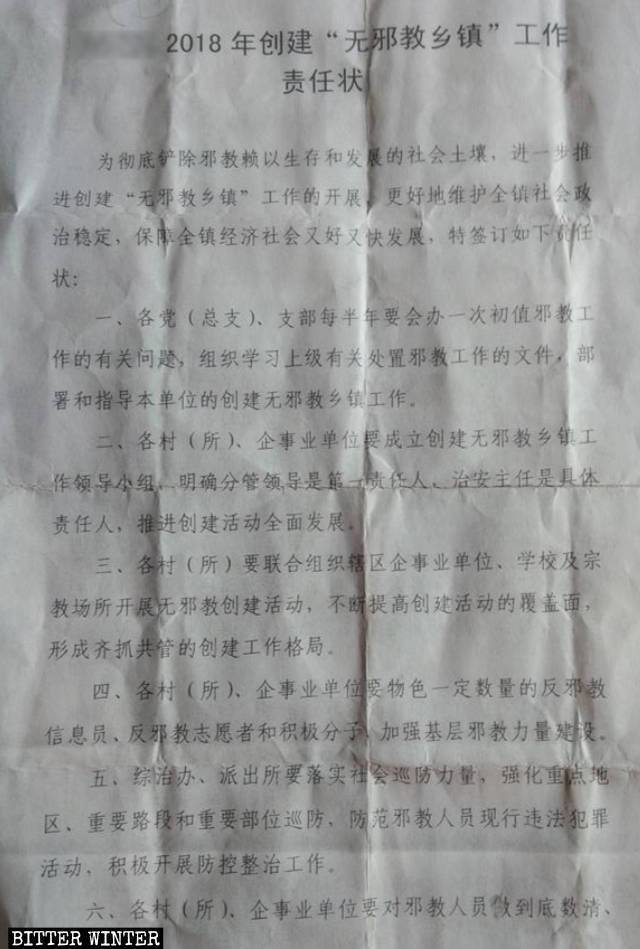 2018 年创建“无邪教乡镇”工作
责任状
为彻底铲除邪教赖以生存和发展的社会土壤，进一步推
进创建“无邪教乡镇”工作的开展，更好地维护全镇社会政
治稳定，保障全镇经济社会又好又快发展，特签订如下责任
状：
一、各党（总支）、支部每半年要会办一次初值邪教工
作的有关问题，组织学习上级有关处置邪教工作的文件，部
署和指导本单位的创建无邪教乡镇工作。
二、各村（所）、企事业单位要成立创建无邪教乡镇工
作领导小组，明确分管领导是第一责任人、治安主任是具体
责任人，推进创建活动全面发展。
三、各村（所）要联合组织辖区企事业单位、学校及宗
教场所开展无邪教创建活动，不断提高创建活动的覆盖面，
形成齐抓共管的创建工作格局。
四、各村（所）、企事业单位要物色一定数量的反邪教
信息员、反邪教志愿者和积极分子，加强基层邪教力量建设。
五、综治办、派出所要落实社会巡防力量，强化重点地
区、重要路段和重要部位巡防，防范邪教人员现行违法犯罪
活动，积极开展防控整治工作。
六、各村（所）、企事业单位要对邪教人员做到底数清、
BITTER WINTER